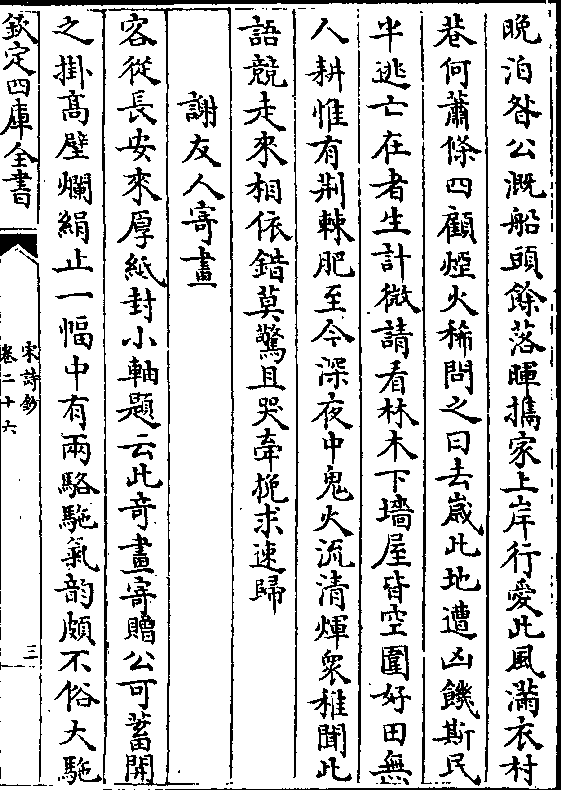 晚泊咎公溉船頭餘落暉攜家上岸行愛此風滿衣村
巷何蕭條四顧煙火稀問之曰去歲此地遭凶饑斯民
半逃亡在者生計微請看林木下墻屋皆空圍好田無
人耕惟有荆棘肥至今深夜中鬼火流清煇衆稚聞此
語競走來相依錯莫驚且哭牽挽求速歸
謝友人寄畫
客從長安來厚紙封小軸題云此奇畫寄贈公可蓄開
之掛髙壁爛絹止一幅中有兩駱駞氣韵頗不俗大駞
欽定四庫全書
宋詩鈔
卷二十六
三